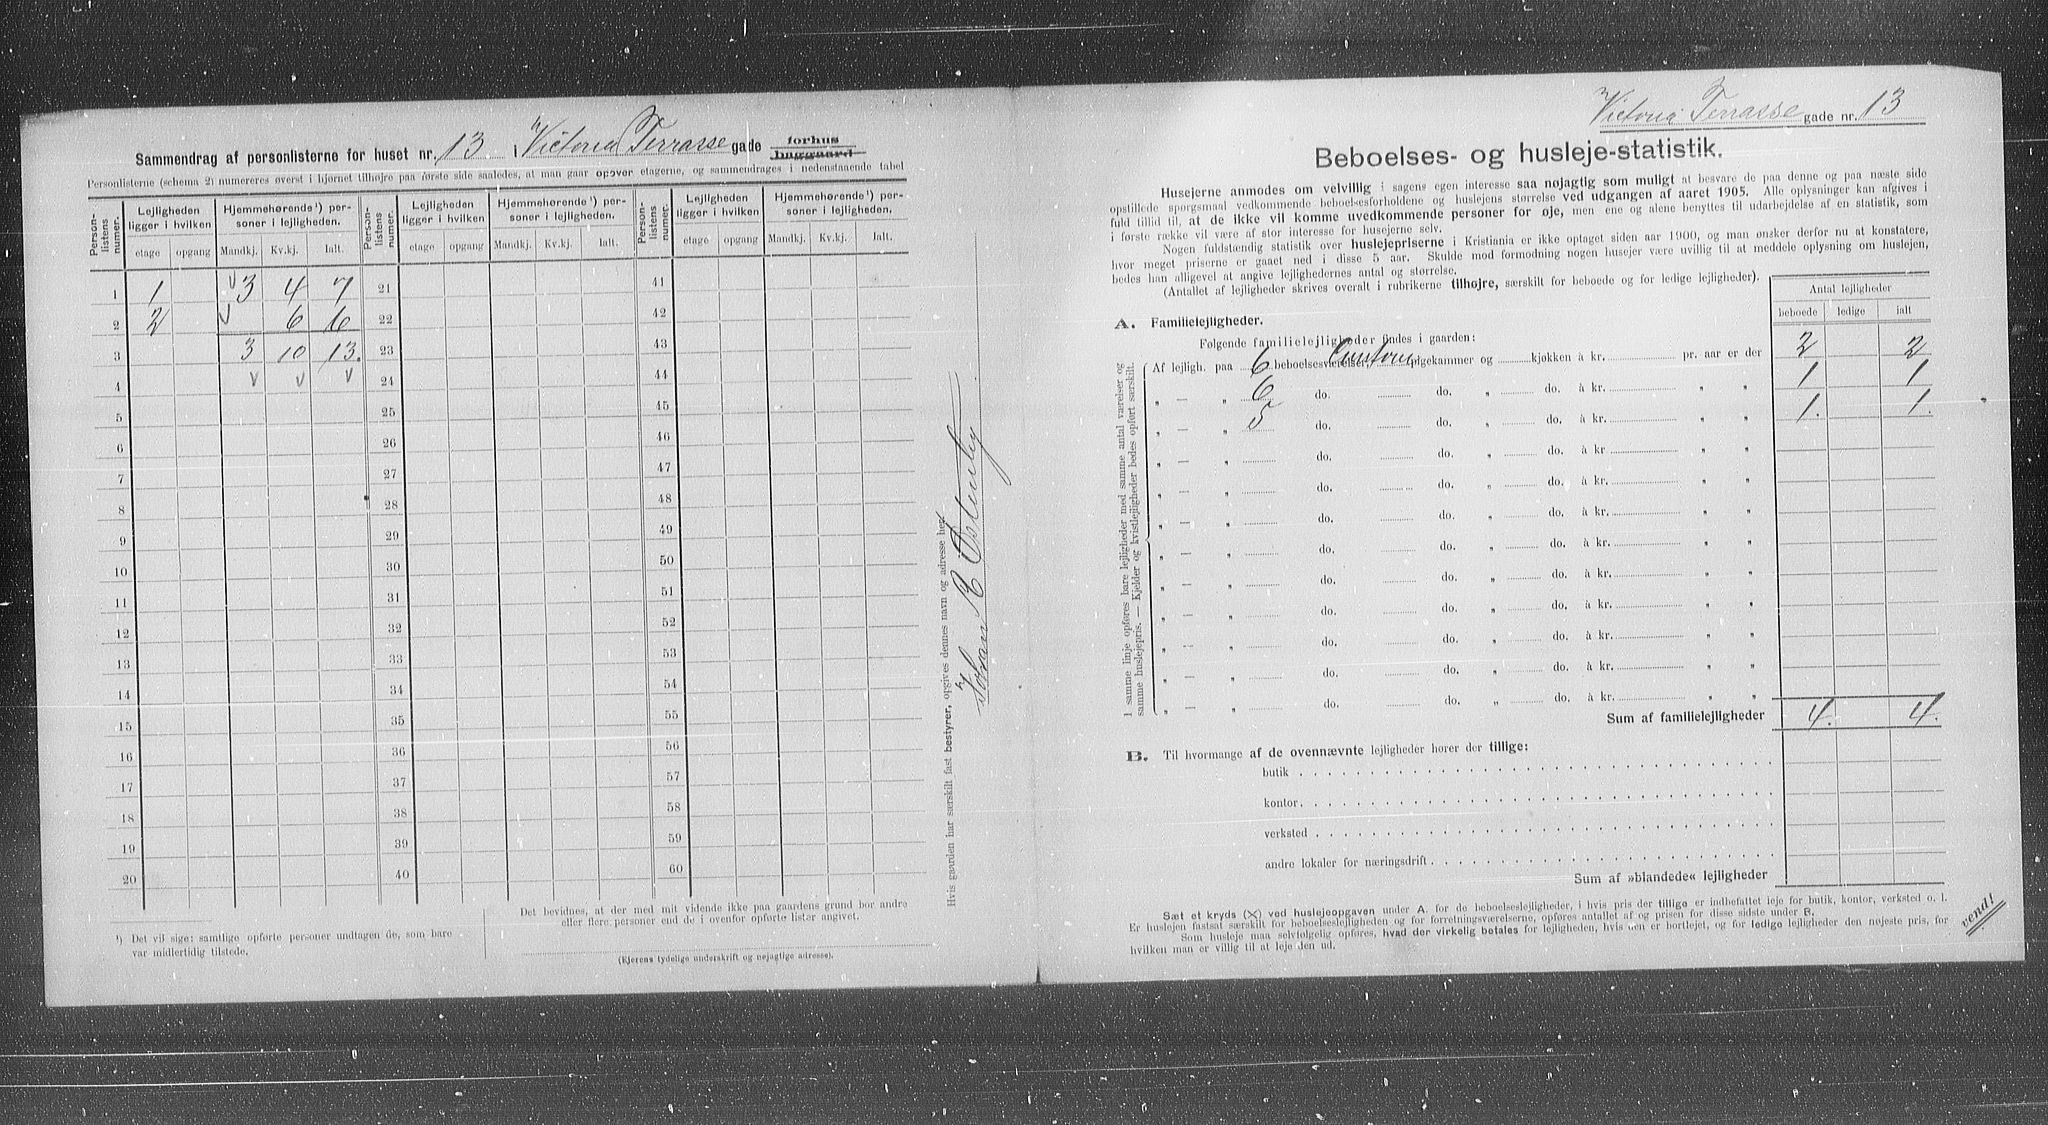 Sammendrag af personlisterne for huset nr. 13 i Victoria Terrasse gade forhus
baggaard
Personlisterne (schema 2) numereres øverst i hjørnet tilhøjre paa første side saaledes, at man gaar opover etagerne, og sammendrages i nedenstaaende tabel
Person-listens numer. Lejligheden ligger i hvilken Hjemmehørende ¹) personer i lejligheden. Person-listens numer. Lejligheden ligger i hvilken Hjemmehørende ¹) personer i lejligheden. Person-listens numer. Lejligheden ligger i hvilken Hjemmehørende ¹) personer i lejligheden.
etage opgang Mandkj. Kv.kj. Ialt. etage opgang Mandkj. Kv.kj. Ialt. etage opgang Mandkj. Kv.kj. Ialt.
1 1 v 3 4 7 21 41
2 2 v 6 6 22 42
3 3 10 13. 23 43
4 v v v 24 44
5 25 45
6 26 46
7 27 47
8 28 48
9 29 49
10 30 50
11 31 51
12 32 52
13 33 53
14 34 54
15 35 55
16 36 56
17 37 57
18 38 58
19 39 59
20 40 60
¹) Det vil sige: samtlige opførte personer undtagen de, som bare
var midlertidig tilstede.
Det bevidnes, at der med mit vidende ikke paa gaardens grund bor andre
eller flere personer end de i ovenfor opførte lister angivet.
(Ejerens tydelige underskrift og nøjagtige adresse).
Hvis gaarden har særskilt fast bestyrer, opgives dennes navn og adresse her:
Johan E Østenby
Victoria Terrasse gade nr. 13
Beboelses- og husleje-statistik.
Husejerne anmodes om velvillig i sagens egen interesse saa nøjagtig som muligt at besvare de paa denne og paa næste side
opstillede spørgsmaal vedkommende beboelsesforholdene og huslejens størrelse ved udgangen af aaret 1905. Alle oplysninger kan afgives i
fuld tillid til, at de ikke vil komme uvedkommende personer for øje, men ene og alene benyttes til udarbejdelse af en statistik, som
i første række vil være af stor interesse for husejerne selv.
Nogen fuldstændig statistik over huslejepriserne i Kristiania er ikke optaget siden aar 1900, og man ønsker derfor nu at konstatere,
hvor meget priserne er gaaet ned i disse 5 aar. Skulde mod formodning nogen husejer være uvillig til at meddele oplysning om huslejen,
bedes han alligevel at angive lejlighedernes antal og størrelse.
(Antallet af lejligheder skrives overalt i rubrikerne tilhøjre, særskilt for beboede og for ledige lejligheder).
Antal lejligheder
beboede ledige ialt
A. Familielejligheder.
Følgende familielejligheder findes i gaarden:
I samme linje opføres bare lejligheder med samme antal værelser og
samme huslejepris. — Kjelder og kvistlejligheder bedes opført særskilt.
Af lejligh. paa 6 beboelsesværelser, pigekammer og kjøkken à kr. pr. aar er der 2 2
„ — „ 6 do. do. „ do. à kr. „ „ 1 1
„ — „ 5 do. do. „ do. à kr. „ „ 1. 1.
„ — „ do. do. „ do. à kr „ „
„ — „ do. do. „ do. à kr. „ „
„ — „ do. do. „ do. à kr. „ „
„ — „ do. do. „ do. à kr. „ „
„ — „ do. do. „ do. à kr. „ „
„ — „ do. do. „ do. à kr. „ „
„ — „ do. do. „ do. à kr. „ „
„ — „ do. do. „ do. à kr. „ „
„ — „ do. do. „ do. à kr. „ „
Sum af familielejligheder 4. 4.
B. Til hvormange af de ovennævnte lejligheder hører der tillige:
butik
kontor
verksted
andre lokaler for næringsdrift
Sum af »blandede« lejligheder
Sæt et kryds (X) ved huslejeopgaven under A. for de beboelseslejligheder, i hvis pris der tillige er indbefattet leje for butik, kontor, verksted o. l.
Er huslejen fastsat særskilt for beboelseslejligheden og for forretningsværelserne, opføres antallet af og prisen for disse sidste under B.
Som husleje maa selvfølgelig opføres, hvad der virkelig betales for lejligheden, hvis den er bortlejet, og for ledige lejligheder den nøjeste pris, for
hvilken man er villig til at leje den ud.
vend!